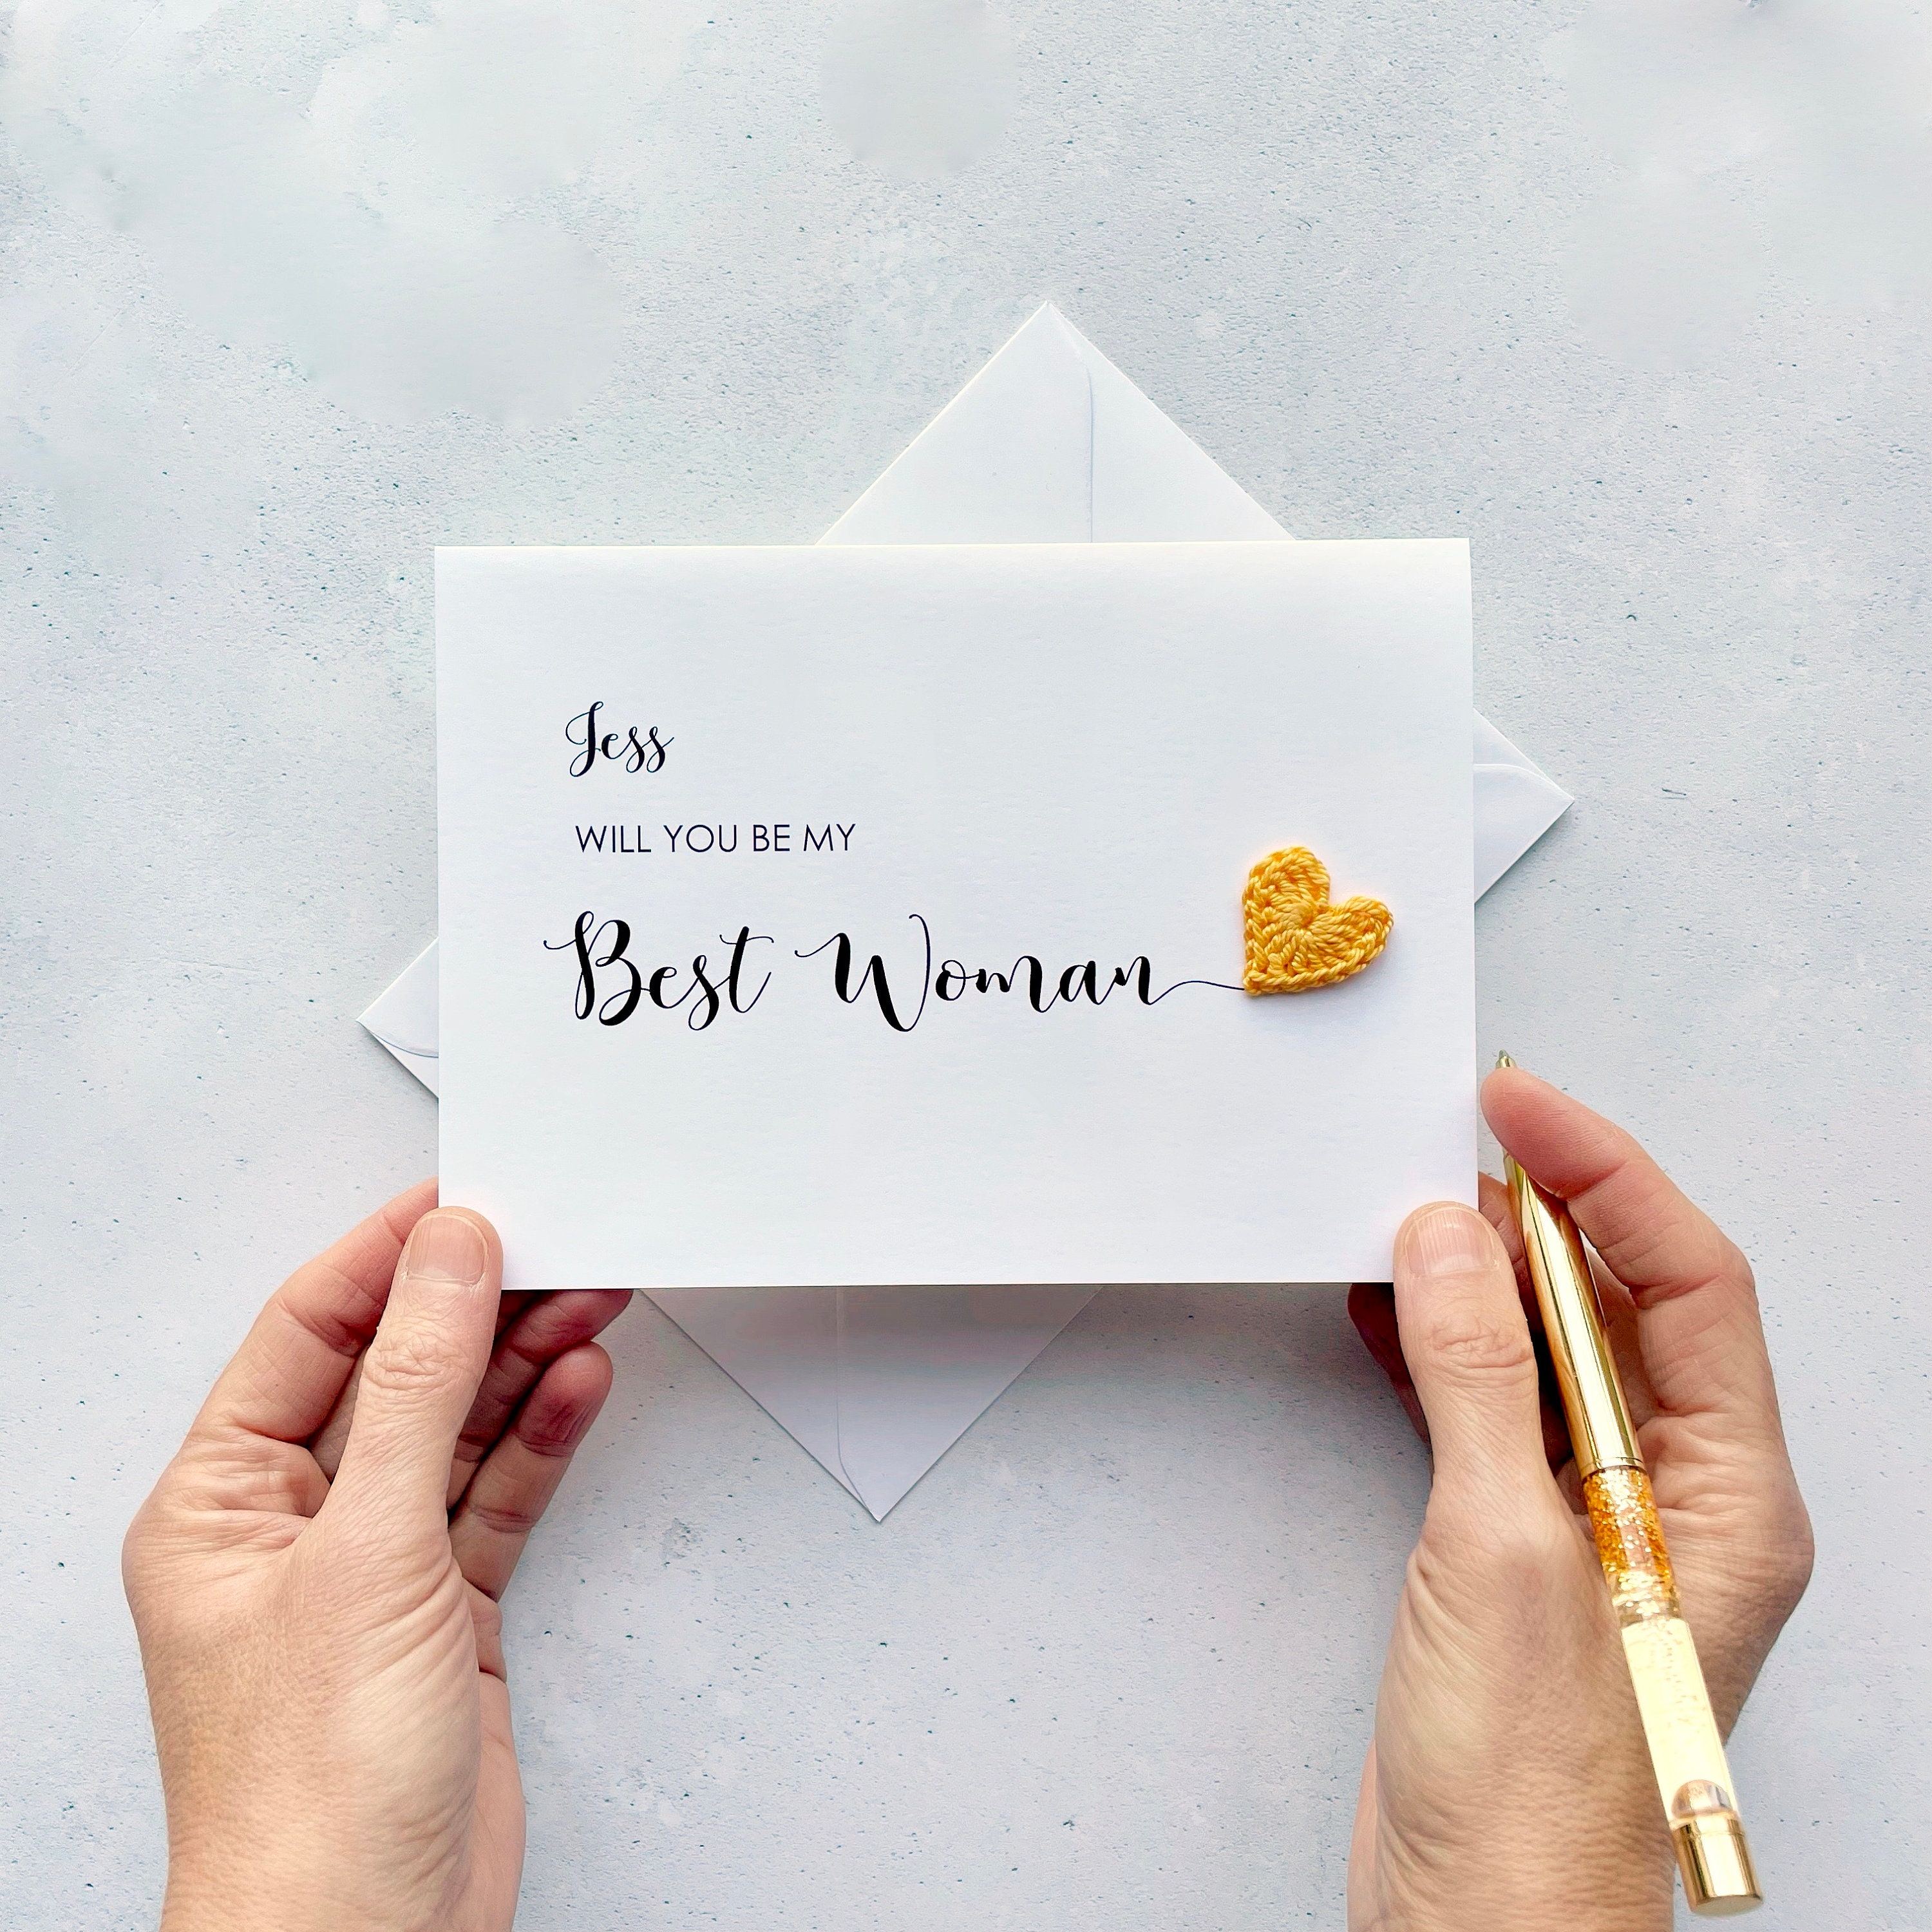 Jess
WILL YOU BE MY
Best Woman